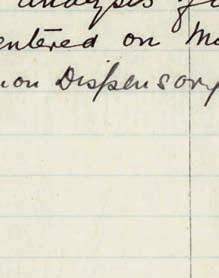 analysis of
entered on Ma
on Dispensary